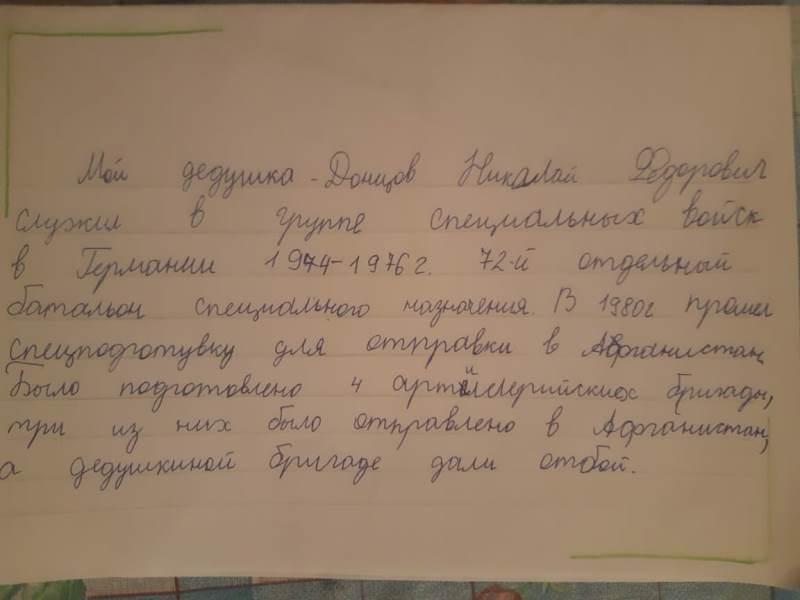 Мой дедушка - Донцов Николай Фёдорович
служил в группе специальных войск
в Германии 1974-1976г. 72-й отдельный
батальон специального назначения. В 1980г прошел
спецподготувку для отправки в Афганистан.
Было подготовлено 4 артиллерийских бригады,
три из них было отправлено в Афганистан,
а дедушкиной бригаде дали отбой.